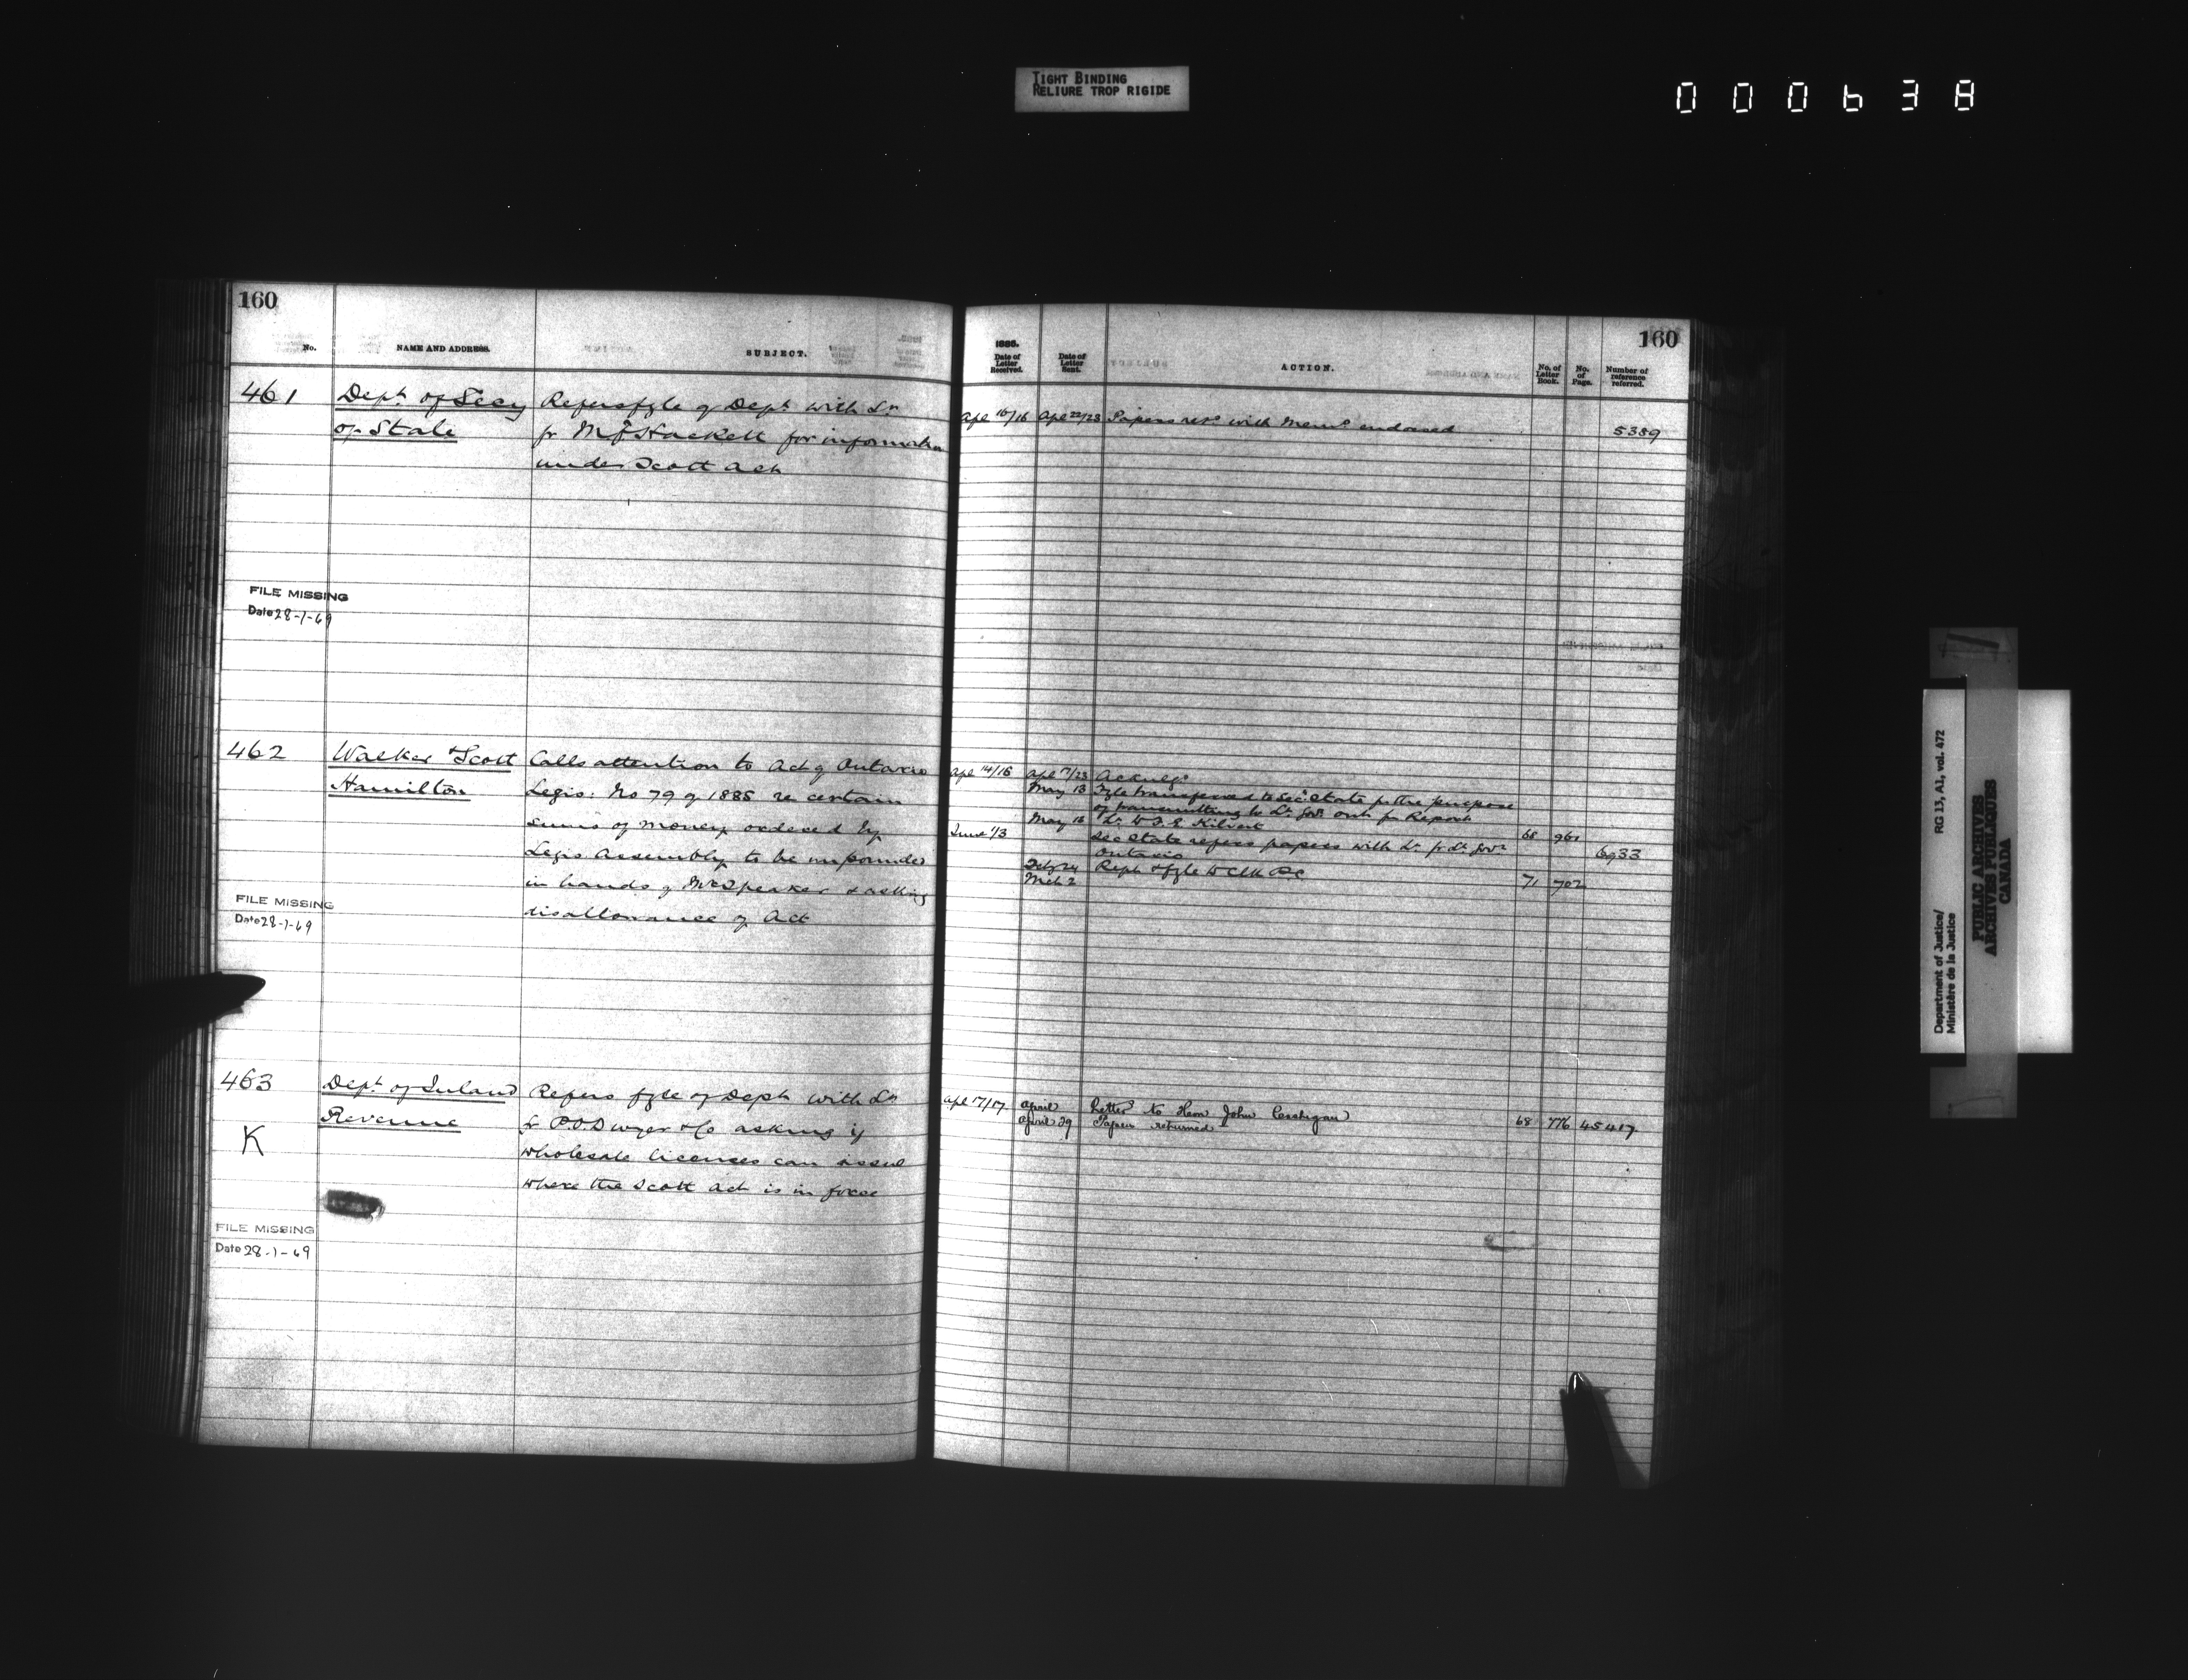 TIGHT BINDING
RELIURE TROP RIGIDE
000638
160
No. NAME AND ADDRESS. SUBJECT.
461 Dept of Secy Refers fyle of Dept with Lr
of State fr M. J. Hackett for information
under Scott Act
FILE MISSING
Date 28-1-69
462 Walker & Scott Calls attention to Act of Ontario
Hamilton Legis: No 79 of 1885 re certain
sums of money ordered by
Legis Assembly to be impounded
in hands of Mr Speaker & asking
disallowance of Act
FILE MISSING
Date 28-1-69
463 Dept of Inland Refers fyle of Dept with Lr
Revenue fr P. O'Dwyer & Co asking if
K wholesale licenses can issue
where the Scott Act is in force
FILE MISSING
Date 28-1-69
160
1885.
Date of Letter Received. Date of Letter Sent. ACTION. No. of Letter Book. No. of Page. Number of reference referred.
Apl 16/16 Apl 22/23 Papers retd with Memo endorsed 5389
Apl 14/16 Apl /23 Acknlgd
May 13 Fyle transferred to Sec State for the purpose
of transmitting to Lt. Govr Ont for Report
May 16 Lr to F. E. Kilvert 68 961
June 1/3 Sec State refers papers with Lr fr Lt. Govr 6933
Ontario
Feby 24 Rept & fyle to Clk P.C.
Mch 2 71 702
Apl 17/17 April Letter to Hon John Costigan 68 776 45417
April 29 Papers returned
Department of Justice/ RG 13, A1, vol. 472
Ministère de la Justice
PUBLIC ARCHIVES
ARCHIVES PUBLIQUES
CANADA